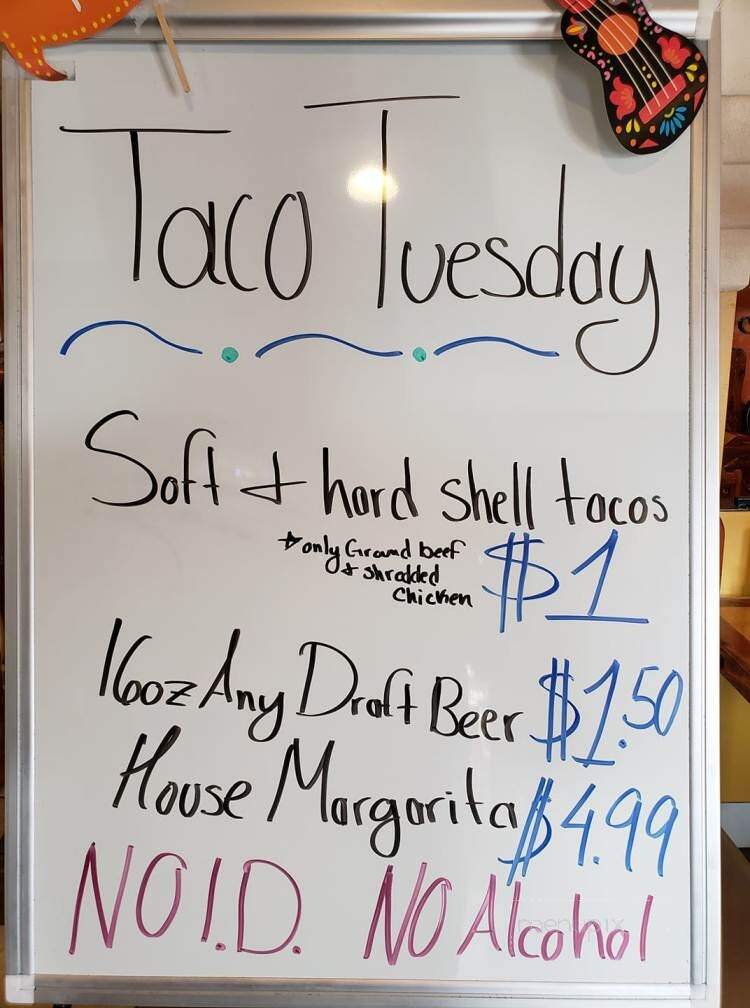 Taco Tuesday
Soft + hard shell tacos
*only Ground beef
+ shredded
Chicken
$1
16oz Any Draft Beer $1.50
House Margarita $4.99
NO I.D. NO Alcohol
menupix